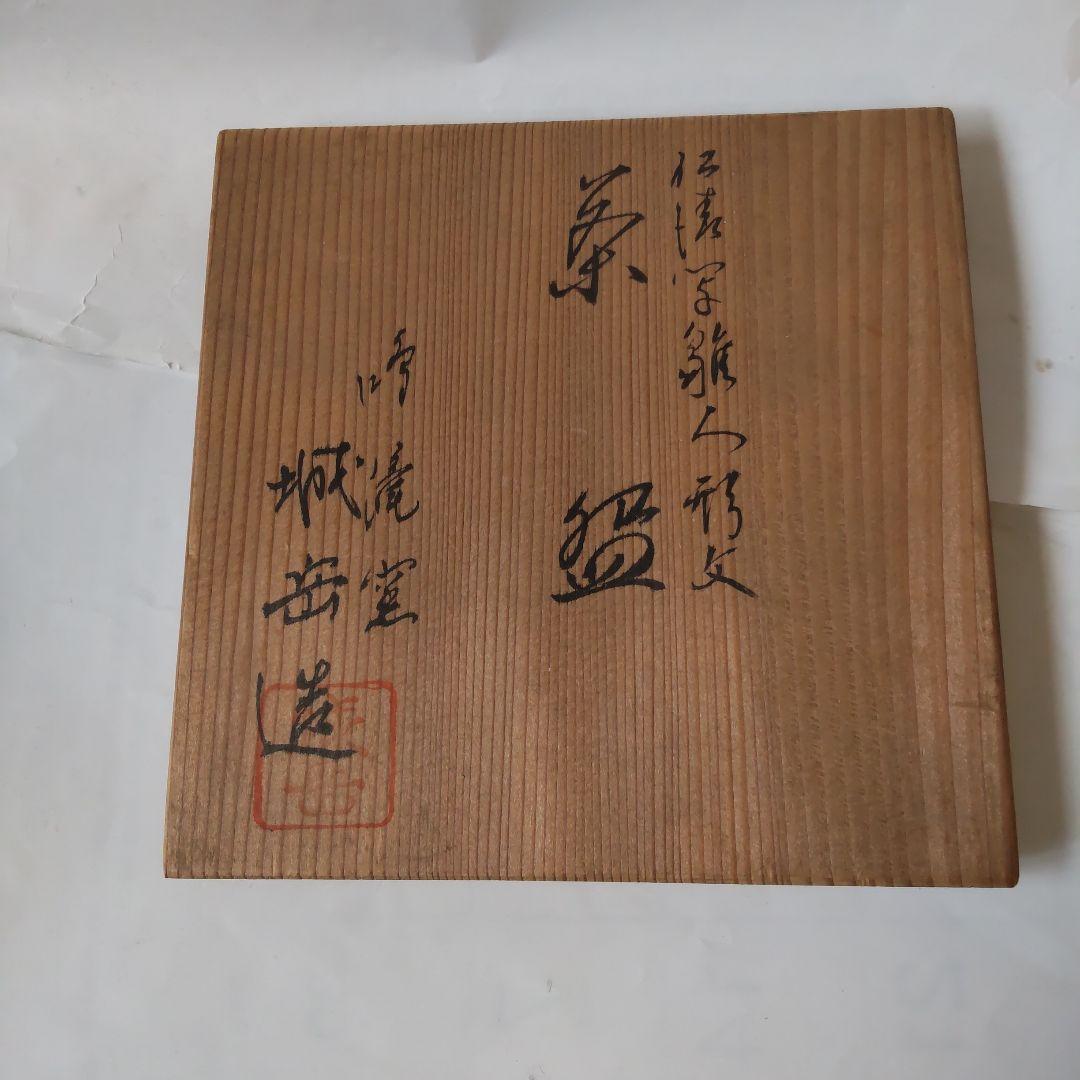 仁清写雛人形文
茶盌
鳴滝窯
城岳造